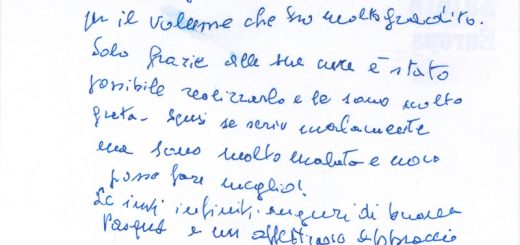 per il volume che ho molto gradito.
Solo grazie alle sue cure è stato
possibile realizzarlo e le sono molto
grata - Scusi se scrivo malamente
ma sono molto malata e non
posso fare meglio!
Le invio infiniti auguri di buona
Pasqua e un affettuoso abbraccio